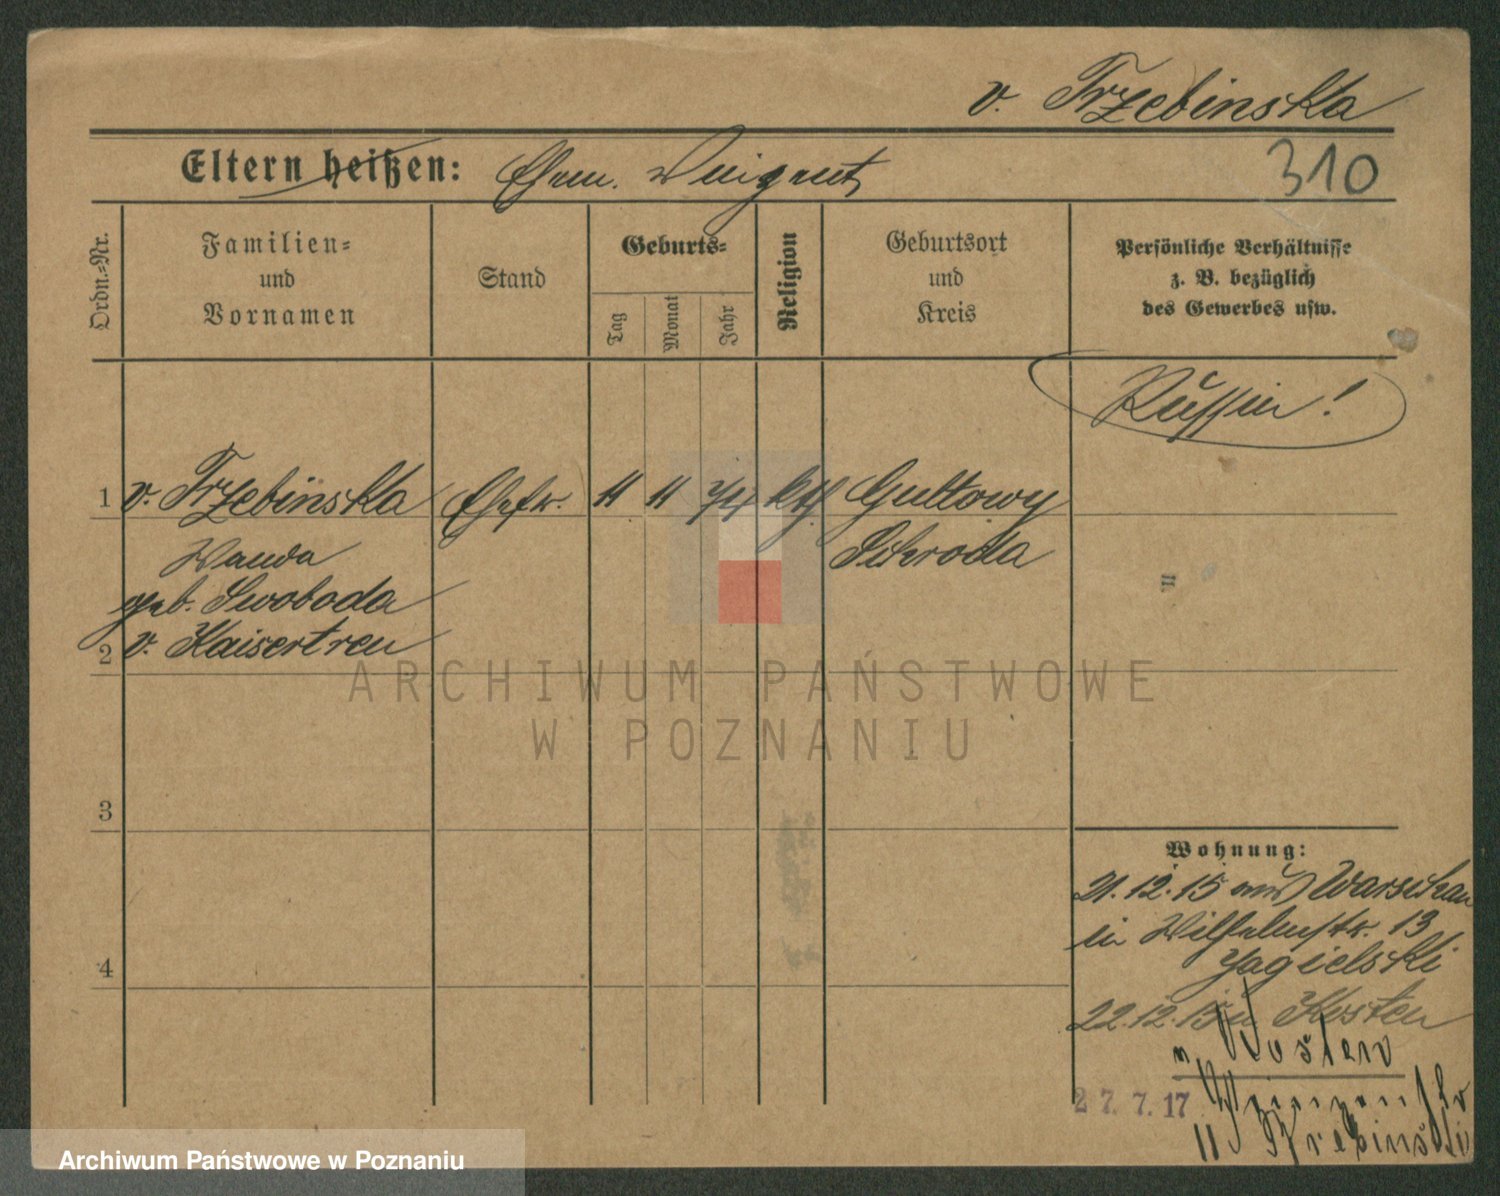 v. Trzebinska
Eltern heißen: Ehem. Wingent
310
Ordn.-Nr.
Familien-
und
Vornamen
Stand
Geburts-
Tag
Monat
Jahr
Religion
Geburtsort
und
Kreis
Persönliche Verhältnisse
z. B. bezüglich
des Gewerbes usw.
Russin!
1 v. Trzebinska Ehefr. 11 11 74 kth Gultowy
Wanda Schroda
geb. Swoboda
2 v. Kaisertreu
3
4
Wohnung:
21.12.15 aus Warschau
in Wilhelmstr. 13
Jagielski
22.12.15 n Kosten
n Posten
27.7.17
11 Trzebinski
ARCHIWUM PAŃSTWOWE
W POZNANIU
Archiwum Państwowe w Poznaniu